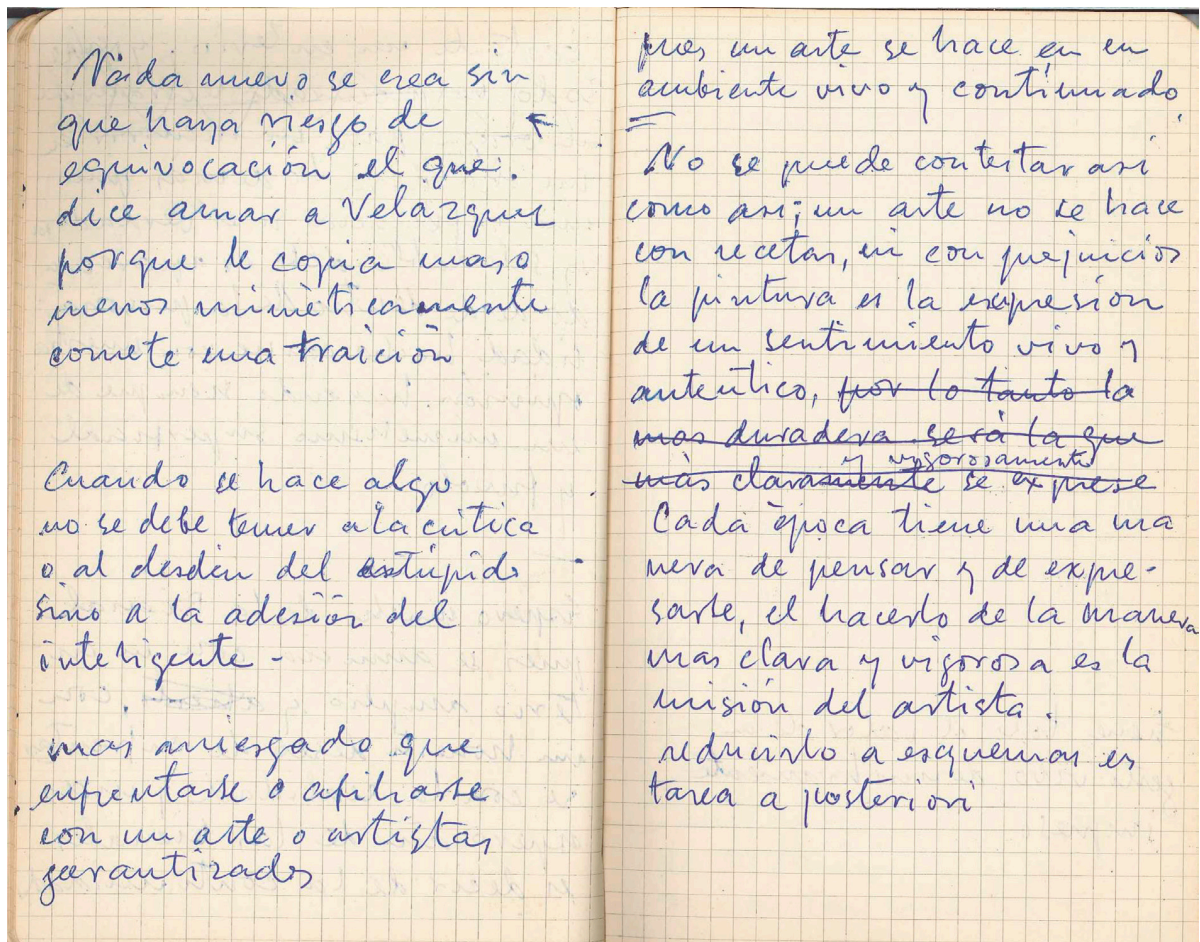 Nada nuevo se crea sin
que haya riesgo de
equivocación el que.
dice amar a Velazquez
porque le copia maso
menos miméticamente
comete una traición
Cuando se hace algo
no se debe temer a la crítica
o al desdén del estúpido
sino a la adesión del
inteligente -
mas arriesgado que
enfrentarse o afiliarse
con un arte o artistas
garantizados
pues un arte se hace en en
ambiente vivo y continuado
No se puede contestar asi
como asi; un arte no se hace
con recetas, ni con prejuicios
la pintura es la expresión
de un sentimiento vivo y
autentico, por lo tanto la
mas duradera será la que
y vigorosamente
más claramente se exprese
Cada época tiene una ma
nera de pensar y de expre-
sarse, el hacerlo de la manera
mas clara y vigorosa es la
misión del artista.
reducirlo a esquemas es
tarea a posteriori